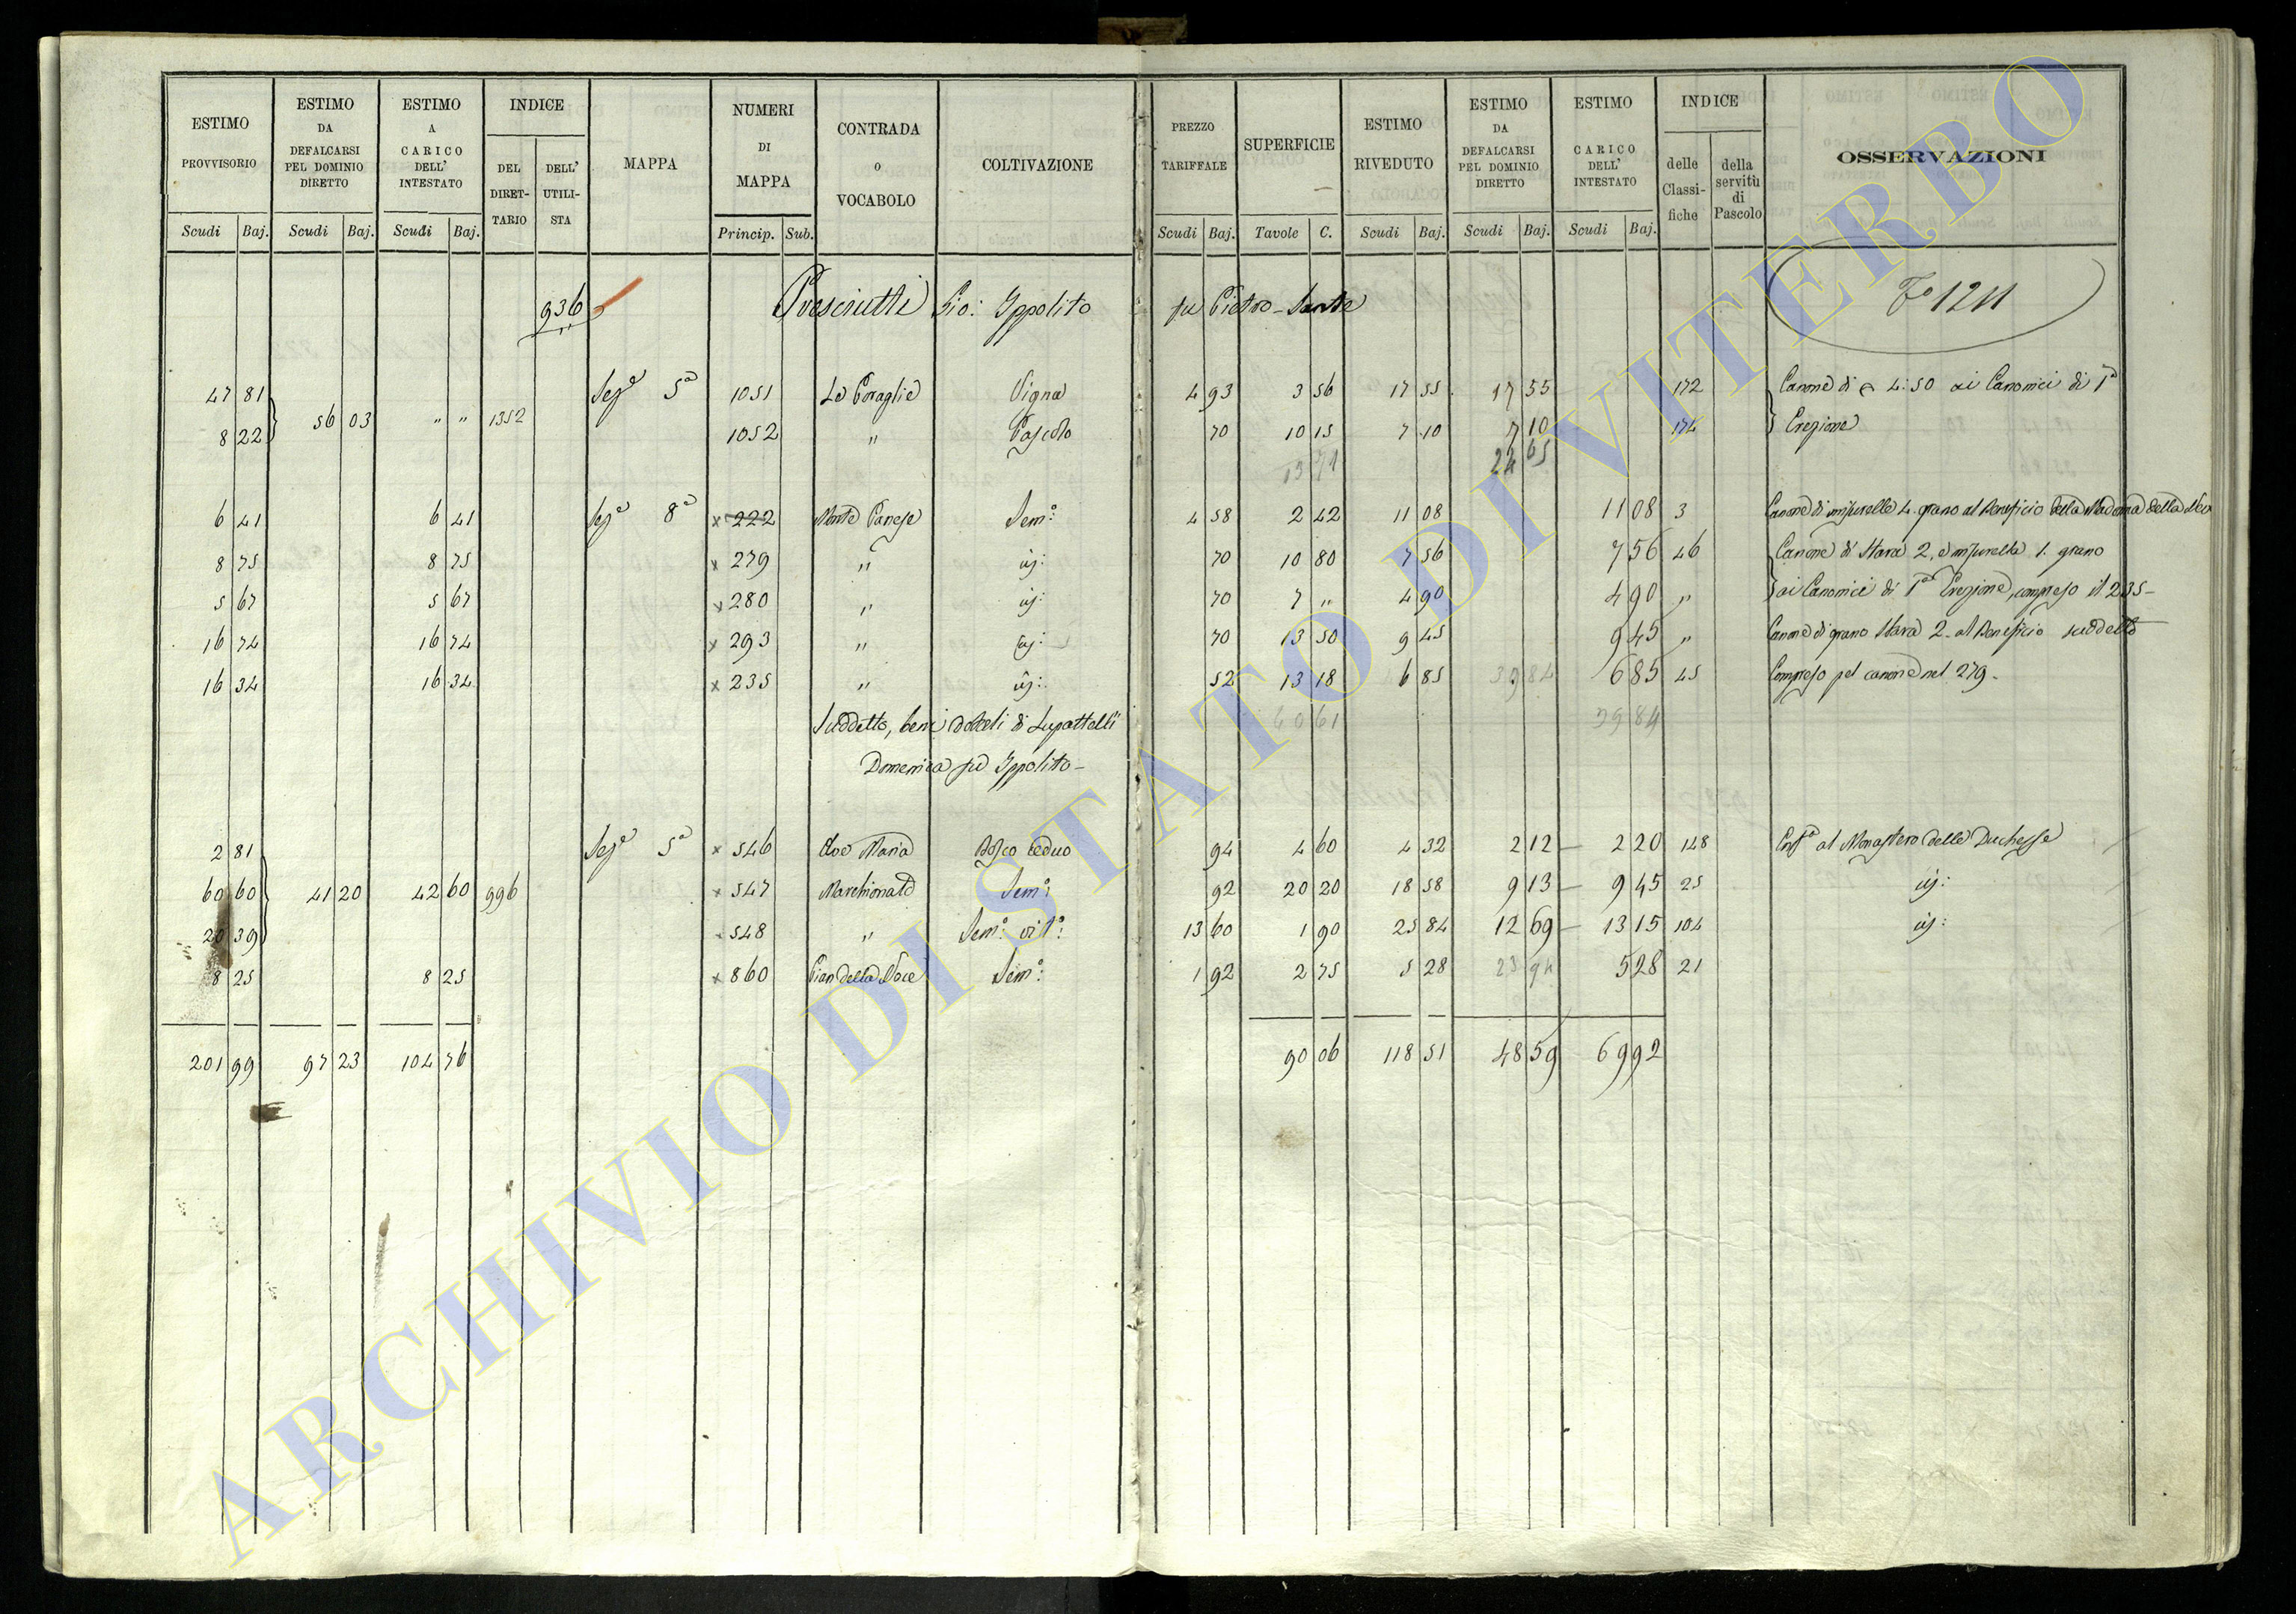 ESTIMO PROVVISORIO Scudi Baj. | ESTIMO DA DEFALCARSI PEL DOMINIO DIRETTO Scudi Baj. | ESTIMO A CARICO DELL' INTESTATO Scudi Baj. | INDICE DEL DIRET-TARIO | DELL' UTILI-STA | MAPPA | NUMERI DI MAPPA Princip. Sub. | CONTRADA o VOCABOLO | COLTIVAZIONE | PREZZO TARIFFALE Scudi Baj. | SUPERFICIE Tavole C. | ESTIMO RIVEDUTO Scudi Baj. | ESTIMO DA DEFALCARSI PEL DOMINIO DIRETTO Scudi Baj. | ESTIMO A CARICO DELL' INTESTATO Scudi Baj. | INDICE delle Classi-fiche | della servitù di Pascolo | OSSERVAZIONI
936 Presciutti Gio: Ippolito fu Pietro-Sante Fo 1211
47 81 Sez.e 5a 1051 Vigna 4 93 3 56 17 55 17 55 172 Canone di 4:50 ai Canonici di 1a
56 03 " " 1352
8 22 1052 " Pascolo 70 10 15 7 10 7 10 174 Erezione
13 71 24 65
6 41 6 41 Sez.e 8a x 222 Monte Sem.o: 4 58 2 42 11 08 11 08 3 Canone di 4. grano al Beneficio della Madonna della
8 75 8 75 x 279 " 70 10 80 7 56 7 56 46 Canone di Stara 2, e 1. grano
5 67 5 67 x 280 " 70 7 " 4 90 4 90 " ai Canonici di 1a Erezione, compreso il 235-
16 74 16 74 x 293 " 70 13 50 9 45 9 45 " Canone di grano Stara 2- al Beneficio suddetto
16 34 16 34 x 235 " 52 13 18 6 85 39 84 6 85 45 Compreso pel canone nel 279-
Suddetto, beni dotali di Lupattelli 60 61 39 84
Domenica fu Ippolito-
2 81 Sez.e 5a x 546 Ave Maria Bosco ceduo 94 4 60 4 32 2 12 — 2 20 148 al Monastero delle Duchesse
60 60 41 20 42 60 996 x 547 Marchionato Sem.o: 92 20 20 18 58 9 13 — 9 45 25
20 39 x 548 " Sem.o: vit.o: 13 60 1 90 25 84 12 69 — 13 15 104
8 25 8 25 x 860 Pian della Noce Sem.o: 1 92 2 75 5 28 23 94 5 28 21
201 99 97 23 104 76 90 06 118 51 48 59 69 92
ARCHIVIO DI STATO DI VITERBO